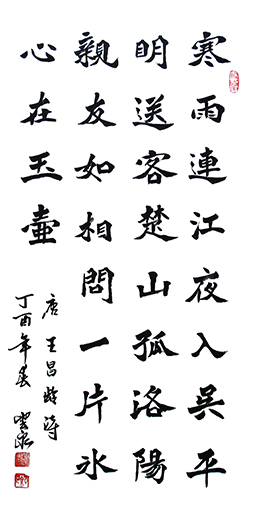 寒雨連江夜入吳平
明送客楚山孤洛陽
親友如相問一片冰
心在玉壺
唐王昌龄诗
丁酉年春